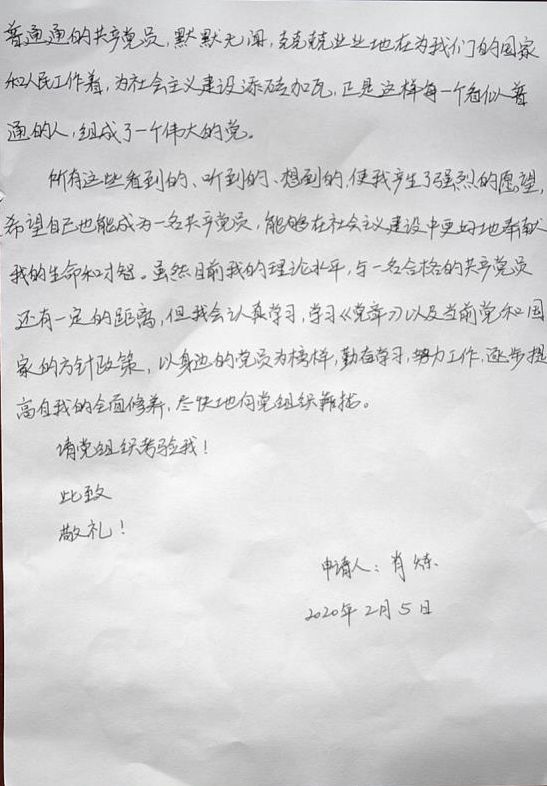 普通通的共产党员，默默无闻，兢兢业业地在为我们的国家
和人民工作着，为社会主义建设添砖加瓦，正是这样每一个看似普
通的人，组成了一个伟大的党。
所有这些看到的、听到的、想到的，使我产生了强烈的愿望，
希望自己也能成为一名共产党员，能够在社会主义建设中更好地奉献
我的生命和才智。虽然目前我的理论水平，与一名合格的共产党员
还有一定的距离，但我会认真学习，学习《党章》以及当前党和国
家的方针政策，以身边的党员为榜样，勤奋学习，努力工作，逐步提
高自我的全面修养，尽快地向党组织靠拢。
请党组织考验我！
此致
敬礼！
申请人：肖炼
2020年2月5日